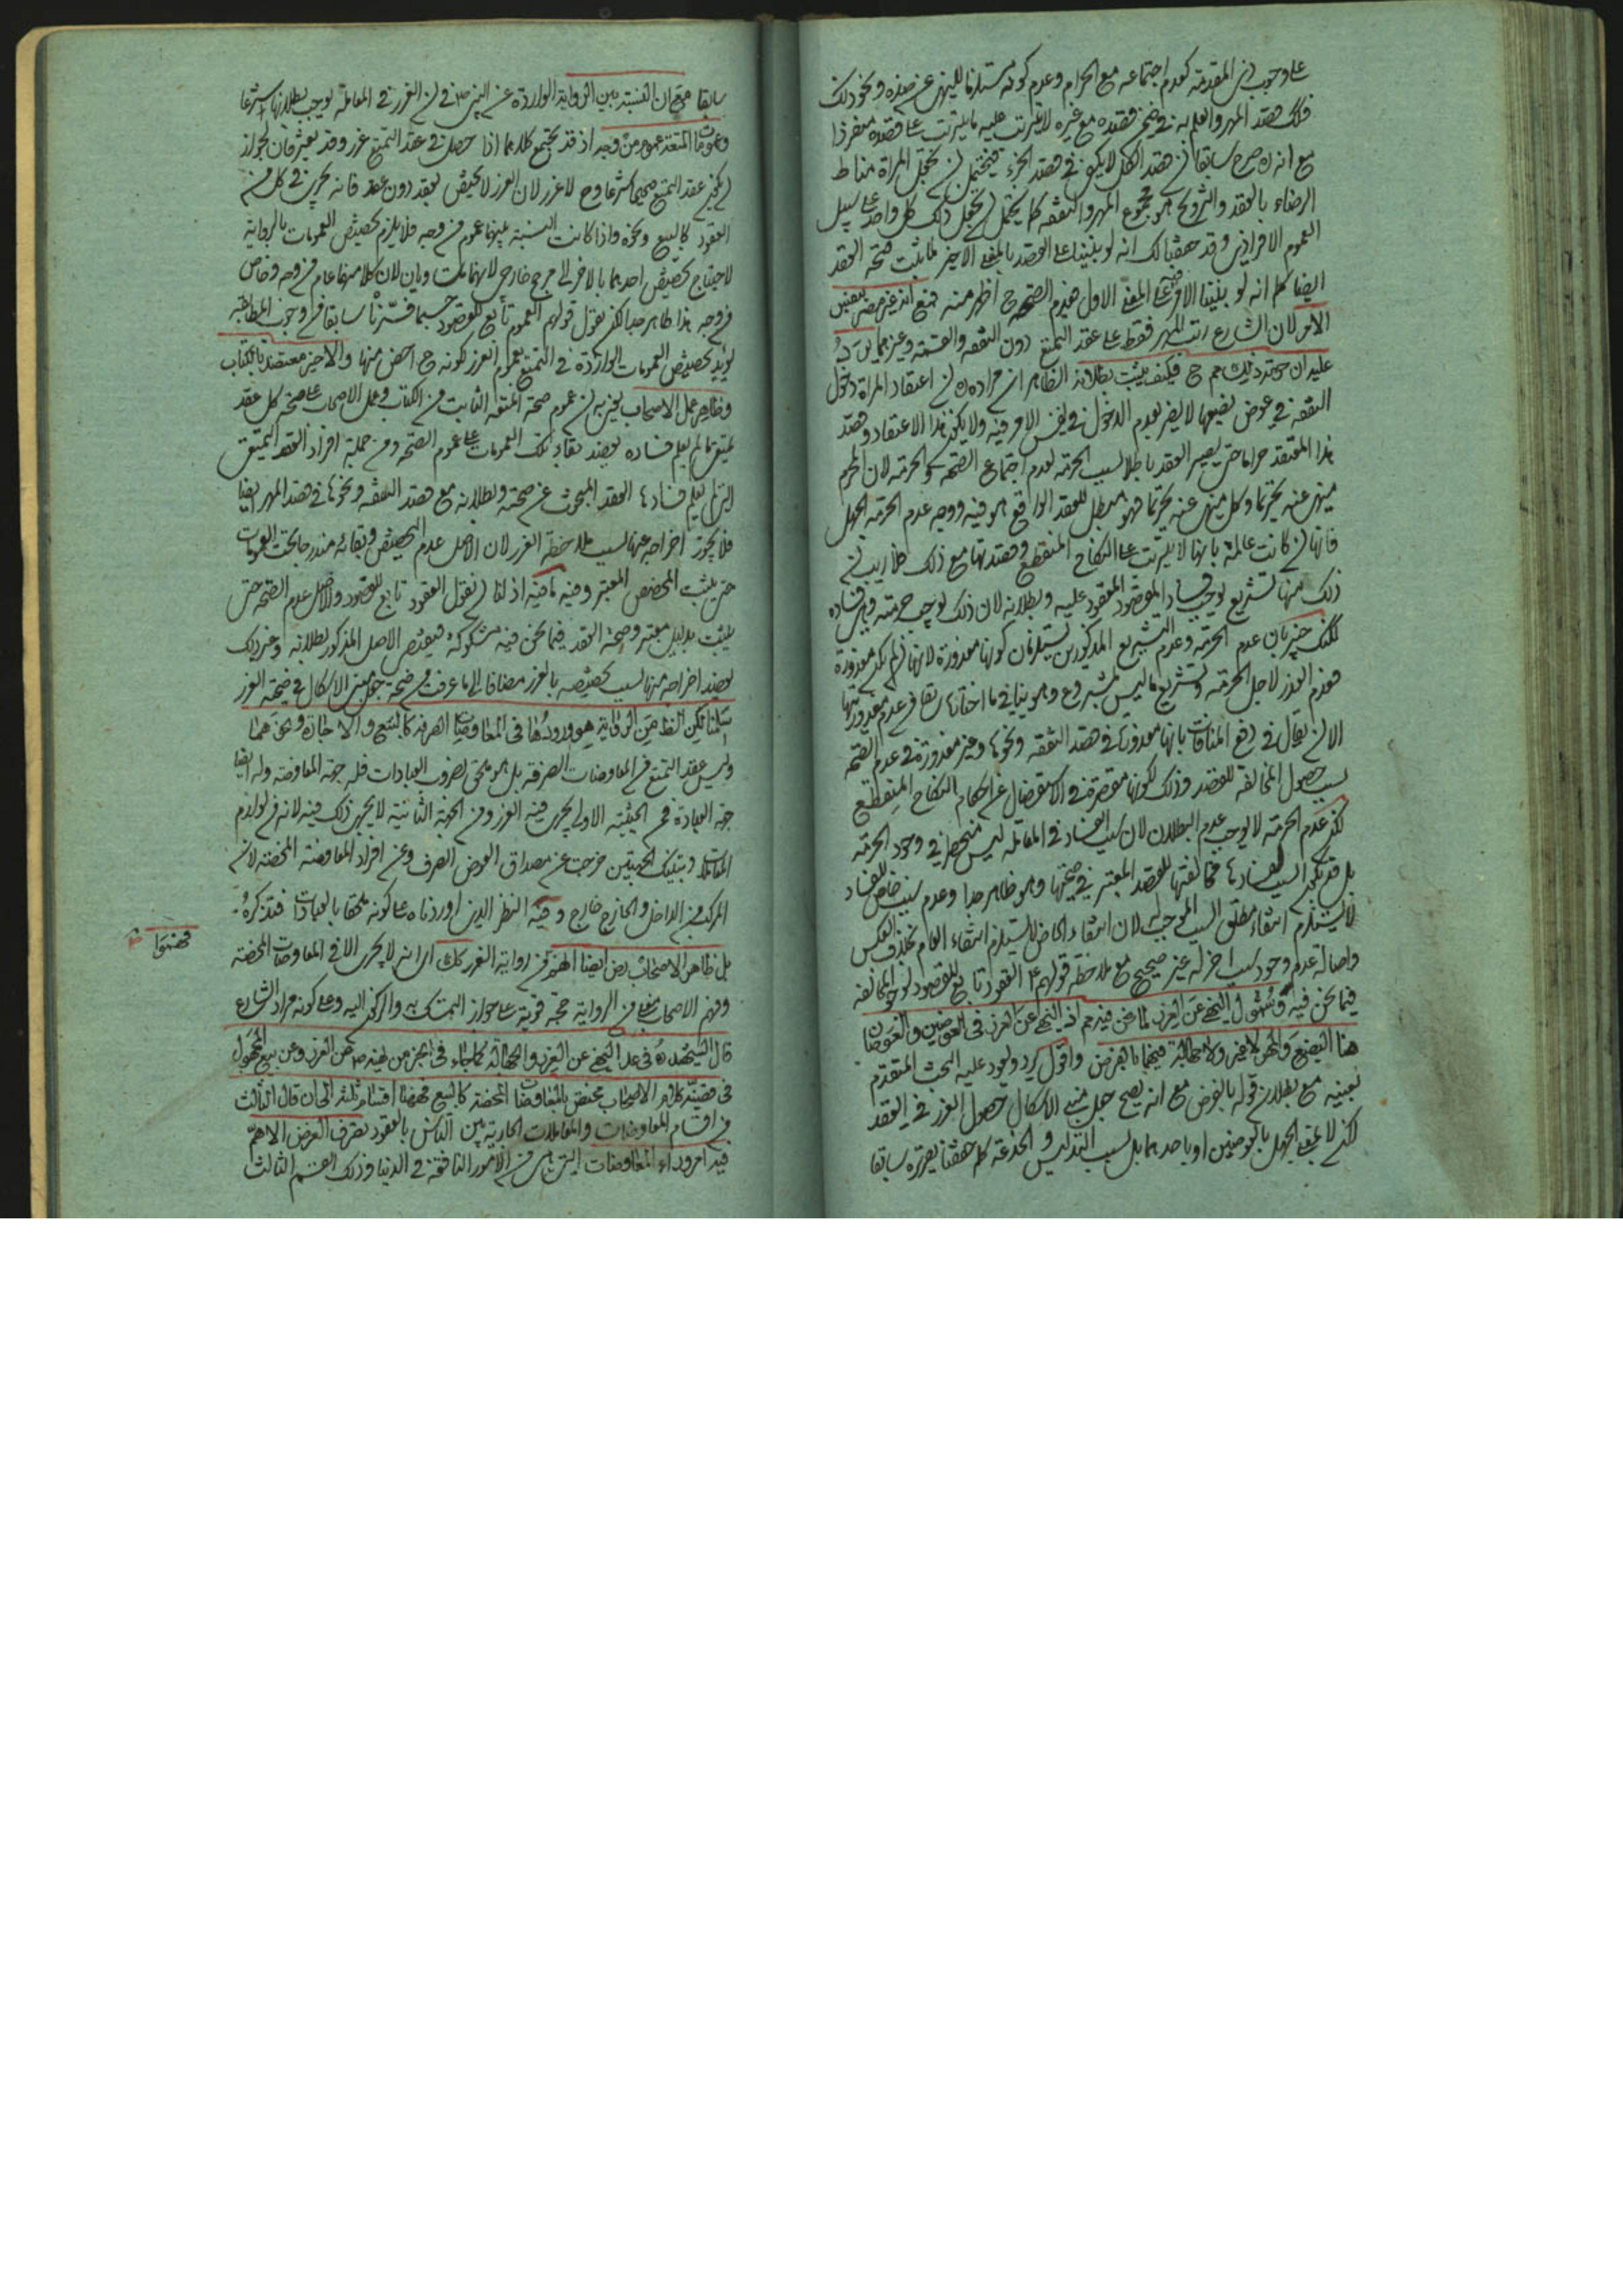 على وجوب ذي المقدمة كعدم اجتماعه مع الحرام وعدم كونه مستلزما للنهي عن ضده ونحو ذلك
فلك قصد المهر والعلم به في ضمن قصده مع غيره لا يترتب عليه ما يترتب على قصده منفردا
مع انه ره صرح سابقا ان قصد الكل لا يكون في قصد الجزء فيحتمل ان تجعل المراة مناط
الرضاء بالعقد والتزويج هو مجموع المهر والنفقة كما يحتمل ان تجعل ذلك كل واحد على سبيل
العموم الافرادي وقد حققنا لك انه لو بنينا على القصد بالمعنى الاخير لما يثبت صحة العقد
ايضا كما انه لو بنينا الامر على المعنى الاول فعدم الصحة ح اظهر منه مع انه غير مضر بنفس
الامر لان الشارع رتب المهر فقط على عقد التمتع دون النفقة والقسمة وغيرهما يرد
عليه ان حرمة ذلك ثم ح فكيف يثبت بطلانه الظاهر ان مراده ره ان اعتقاد المراة دخول
النفقة في عوض بضعها لا يضر بعدم الدخول في نفس الامر فيه ولا يكون هذا الاعتقاد وقصد
هذا المعتقد حراما حتى يصير العقد باطلا بسبب الحرمة لعدم اجتماع الصحة والحرمة لان المحرم
منهي عنه تحريما وكل منهي عنه تحريما فهو مبطل للعقد الواقع هو فيه ووجه عدم الحرمة الجهل
فانها ان كانت عالمة بانها لا يترتب على النكاح المنقطع وقصدتها مع ذلك فلا ريب ان
ذلك منها تشريع يوجب فساد المقصود المعقود عليه وبطلانه لان ذلك يوجب حرمته وهي فساده
لكنك خبير بان عدم الحرمة وعدم التشريع المذكورين يستلزمان كونها معذورة لانها ان لم تكن معذورة
فعدم العذر لاجل الحرمة وتشريع ما ليس بمشروع وهو ينافي ما اختاره سابقا من عدم معذوريتها
الا ان يقال في رفع المنافات بانها معذورة في قصد النفقة ونحوها وغير معذورة في عدم الصحة
بسبب حصول المخالفة للقصد وذلك لكونها مقصرة في الاستفصال عن احكام النكاح المنقطع
لكن عدم الحرمة لا يوجب عدم البطلان لان سبب الفساد في المعاملة ليس منحصرا في وجود الحرمة
بل قد يكون السبب لفسادها مخالفتها للقصد المعتبر في صحتها وهو ظاهر جدا وعدم سبب خاص للفساد
لا يستلزم انتفاء مطلق السبب الموجب له لان انتفاء الخاص لا يستلزم انتفاء العام بخلاف العكس
واصالة عدم وجود سبب اخر له غير صحيح مع ملاحظة قولهم ع العقود تابع للقصود لوجود المخالفة
فيما نحن فيه وشمول النهي عن الغرر لما نحن فيه ثم اذ النهي عن الغرر في العوضين والعوضان
هنا البضع والمهر لا غير ولا جهالة فيهما بالفرض واقول يرد ويعود عليه البحث المتقدم
بعينه مع بطلان قوله بالفرض مع انه يصح جعل مبنى الاشكال حصول الغرر في العقد
لكن لا بمعنى الجهل بالعوضين او باحدهما بل بسبب التدليس والخدعة كما حققنا تقريره سابقا
سابقا مع ان النسبة بين الرواية الواردة عن النبي ص في ان الغرر في المعاملة يوجب بطلانها شرعا
وعمومات المتعة عموم من وجه اذ قد يجتمع كلاهما اذا حصل في عقد التمتع غرر وقد يفترقان لجواز
ان يكون عقد التمتع صحيحا شرعا وح لا غرر لان الغرر لا يختص بعقد دون عقد فانه يجري في كل من
العقود كالبيع ونحوه واذا كانت النسبة بينهما عموم من وجه فلا يلزم تخصيص العمومات بالرواية
لاحتياج تخصيص احدهما بالاخر الى مرجح خارجي لانهما متساويان لان كلا منهما عام من وجه وخاص
من وجه هذا ظاهر جدا لكن نقول قولهم العموم تابع للقصود حسبما قررنا سابقا من وجوب المطابقة
يؤيد تخصيص العمومات الواردة في التمتع بعموم الغرر كونه ح اخص منها والاخير معتضد بالكتاب
وظاهر عمل الاصحاب يعني به ان عموم صحة المتعة الثابت من الكتاب وعمل الاصحاب على صحة كل عقد
تمتع ما لم يعلم فساده يعضد بقاء تلك العمومات على عموم الصحة ومن جملة افراد العقد التمتعي
التي لم يعلم فسادها العقد المبحوث عن صحته وبطلانه مع قصد النفقة ونحوها في قصد المهر ايضا
فلا يجوز اخراجه عنها بسبب ملاحظة الغرر لان الاصل عدم التخصيص وبقائه مندرجا تحت العمومات
حتى يثبت المخصص المعتبر وفيه ما فيه اذ لنا ان نقول العقود تابع للقصود والاصل عدم الصحة حتى
يثبت بدليل معتبر وصحة العقد فيما نحن فيه مشكوكة فيقتضي الاصل المذكور بطلانه وغير ذلك
يعضد اخراجه منها بسبب تخصيصه بالغرر مضافا الى ما عرفت من صحة جعل مبنى الاشكال في صحته الغرر
سلمنا لكن الظ من الرواية هو ورودها في المعاوضات الصرفة كالبيع والاجارة ونحوهما
وليس عقد التمتع من المعاوضات الصرفة بل هو ملحق بضروب العبادات فله جهة المعاوضة وله ايضا
جهة العبادة فمن الحيثية الاولى يجري فيه الغرر ومن الجهة الثانية لا يجري ذلك فيه لانه من لوازم
المعاملات وبتينك الجهتين خرجت عن مصداق العوض الصرف وعن افراد المعاوضة المحضة لان
المركب من الداخل والخارج خارج وفيه النظر الذي اوردناه على كونه ملحقا بالعبادات فتذكره
بل ظاهر الاصحاب رض ايضا الفهم من رواية الغرر كك اي انه لا يجري الا في المعاوضات المحضة
وفهم الاصحاب معنى من الرواية حجة قوية على جواز التمسك به والركون اليه وعلى كونه مراد الشارع
قال الشهيد ره في عد النهي عن الغرر والجهالة كما جاء في الخبر من نهيه ص عن الغرر وعن بيع المجهول
في قضية كلام الاصحاب مختص بالمعاوضات المحضة كالبيع فههنا اقسام ثلثة الى ان قال الثالث
من اقسام المعاوضات والمعاملات الجارية بين الناس بالعقود بصرف الغرض الاهم
فيه امر وراء المعاوضات التي هي من الامور النافعة في الدنيا وذلك القسم الثالث
فههنا